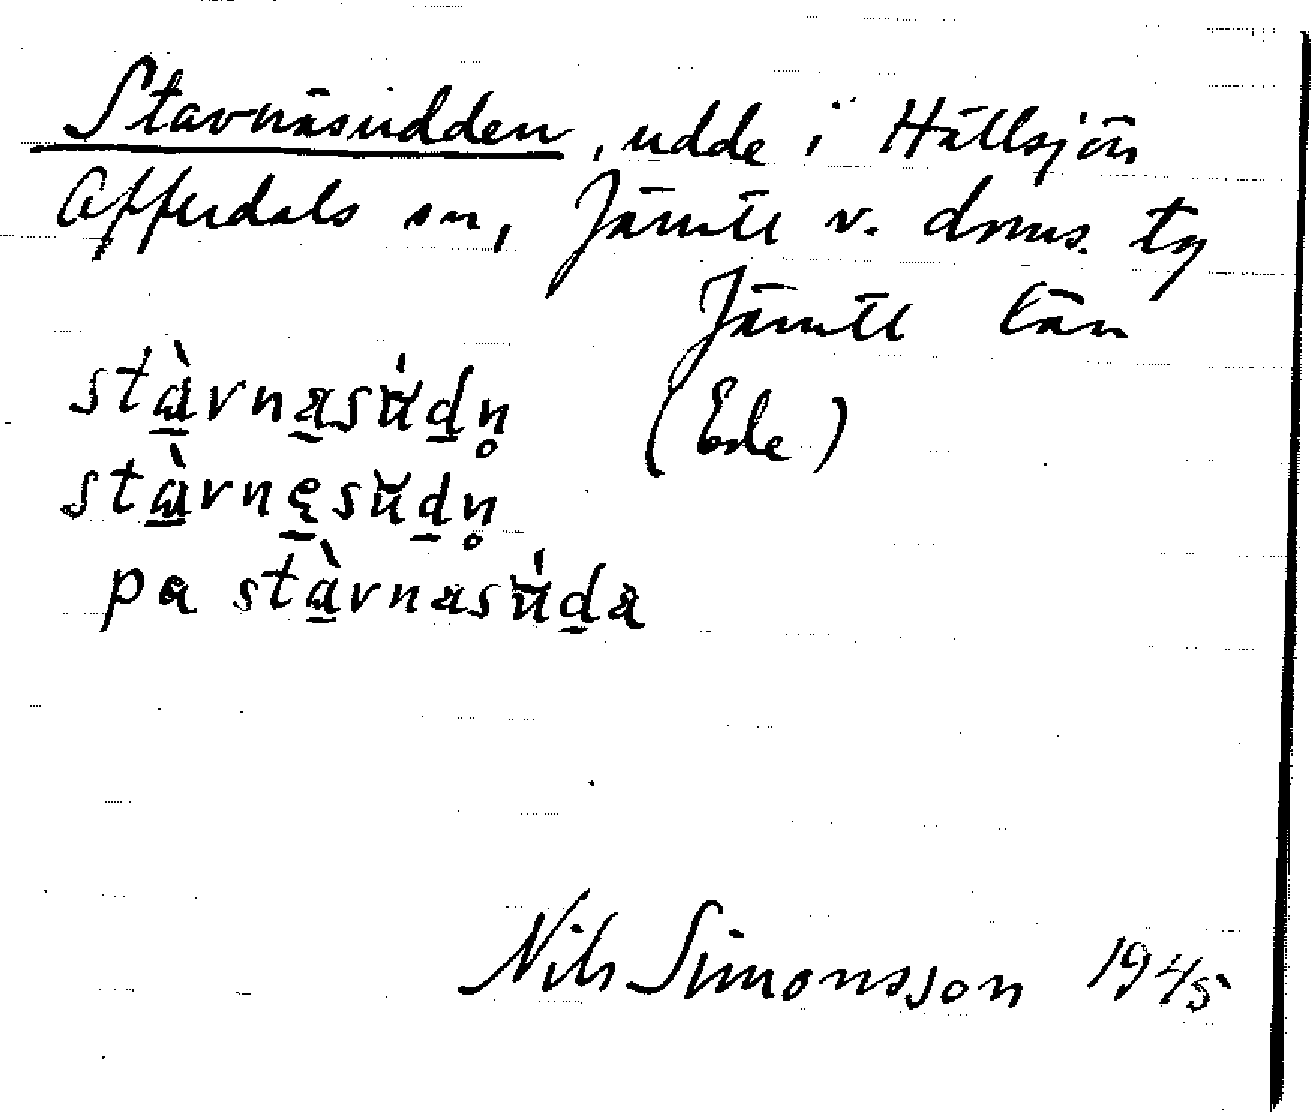 Stavnäsudden, udde i Hällsjön
Offerdals sn, Jämtl v. doms. tg
Jämtl län
stàvnasúdn̥ (Ede)
stàvnęsudn̥
pa stàvnasúda
Nils Simonsson 1945